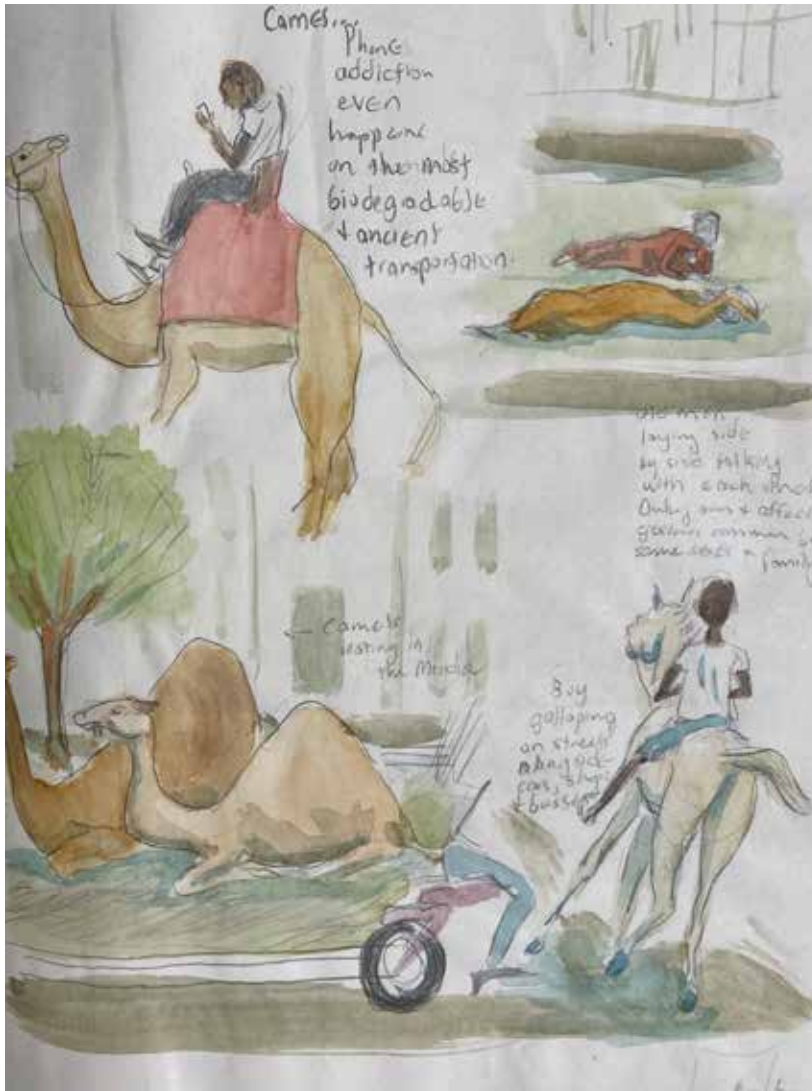 Camels...
Phone
addiction
even
happens
on the most
biodegradable
+ ancient
transportation.
old men
laying side
by side talking
with each other
Only
common
same sexes a family
Camels
resting in
the Median
Boy
galloping
on streets
cars,
+ busses